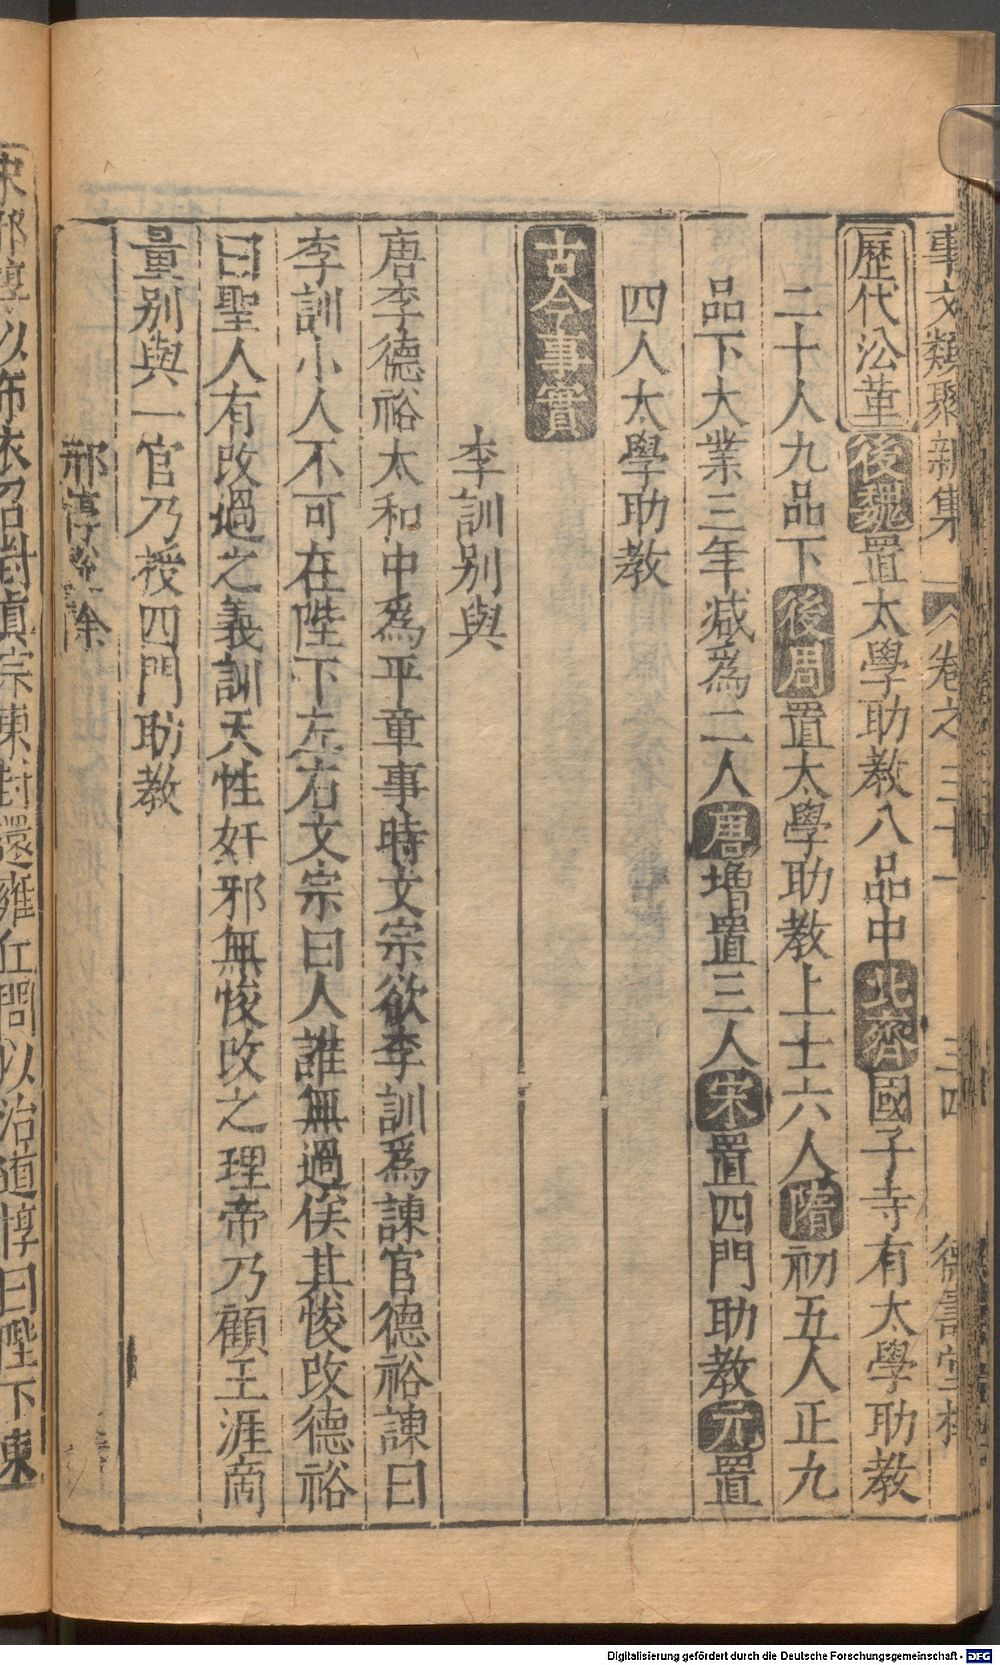 事文類聚新集 卷之三十一 三四 德壽堂梓
歷代沿革後魏置太學助教八品中北齊國子寺有太學助教
二十人九品下後周置太學助教上士六人隋初五人正九
品下大業三年减為二人唐增置三人宋置四門助教元置
四人太學助教
古今事實
李訓别與
唐李德裕太和中爲平章事時文宗欲李訓爲諫官德裕諫曰
李訓小人不可在陛下左右文宗曰人誰無過俟其悛改德裕
曰聖人有改過之義訓天性奸邪無悛改之理帝乃顧王涯商
量别與一官乃授四門助教
邢惇除
宋邢惇以布衣召對真宗東封還雍丘問以治道惇曰陛下東
Digitalisierung gefördert durch die Deutsche Forschungsgemeinschaft - DFG